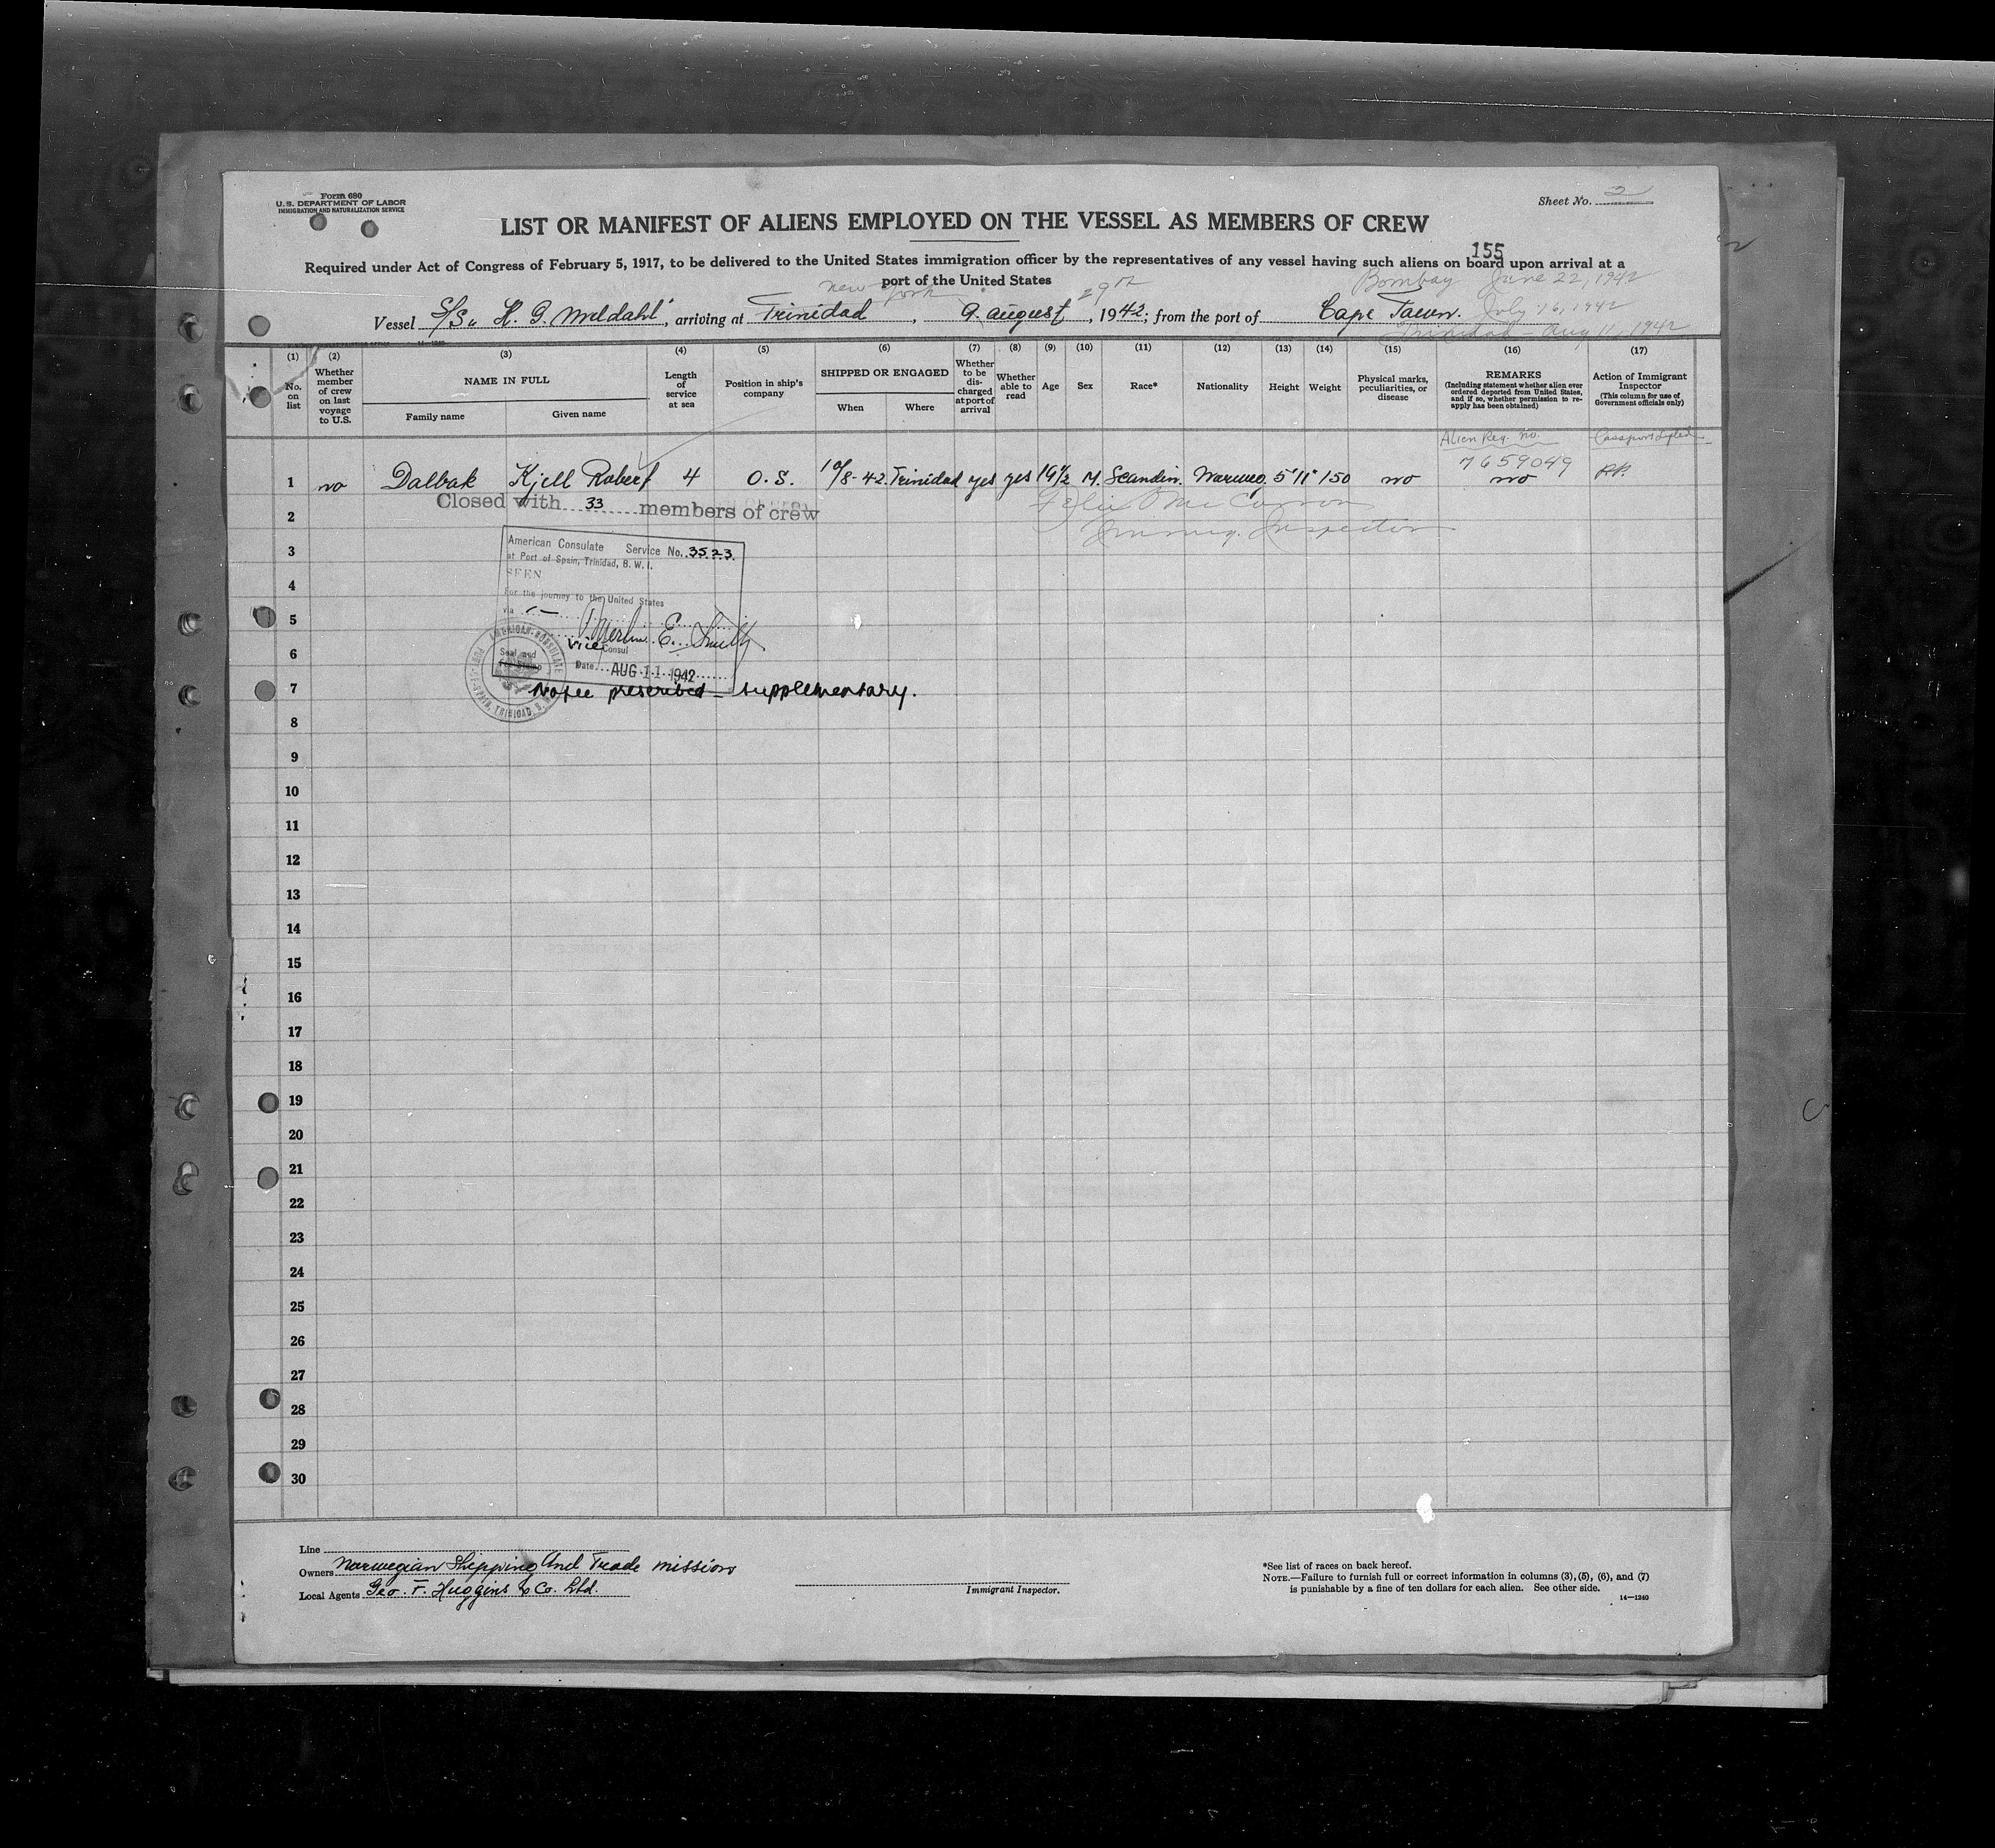 Form 680
U. S. DEPARTMENT OF LABOR
IMMIGRATION AND NATURALIZATION SERVICE
Sheet No. 2
LIST OR MANIFEST OF ALIENS EMPLOYED ON THE VESSEL AS MEMBERS OF CREW
155
Required under Act of Congress of February 5, 1917, to be delivered to the United States immigration officer by the representatives of any vessel having such aliens on board upon arrival at a
port of the United States
New York 29th Bombay June 22, 1942
Vessel S/S "K. G. Meldahl", arriving at Trinidad, 9. august, 1942; from the port of Cape Town. July 16, 1942
Trinidad - Aug 11, 1942
(1) (2) (3) (4) (5) (6) (7) (8) (9) (10) (11) (12) (13) (14) (15) (16) (17)
No. on list
Whether member of crew on last voyage to U.S.
NAME IN FULL
Family name Given name
Length of service at sea
Position in ship's company
SHIPPED OR ENGAGED
When Where
Whether to be discharged at port of arrival
Whether able to read
Age
Sex
Race*
Nationality
Height
Weight
Physical marks, peculiarities, or disease
REMARKS
(Including statement whether alien ever ordered deported from United States, and if so, whether permission to reapply has been obtained)
Action of Immigrant Inspector
(This column for use of Government officials only)
Alien Reg. no.
7659049
1 no Dalbak Kjell Robert 4 O. S. 10/8-42 Trinidad yes yes 19½ M. Scandin. 5'11" 150 no no
Closed with 33 members of crew
Immig. Inspector
2
3
4
5
6
7
8
9
10
11
12
13
14
15
16
17
18
19
20
21
22
23
24
25
26
27
28
29
30
American Consulate Service No. 3523
at Port of Spain, Trinidad, B. W. I.
SEEN
For the journey to the United States
via
Merlin E. Smith
Vice Consul
Seal and
Date AUG 11 1942
AMERICAN CONSULATE
PORT-OF-SPAIN, TRINIDAD, B. W. I.
No fee prescribed - supplementary.
Line
Owners Norwegian Shipping And Trade mission
Local Agents Geo. F. Huggins & Co. Ltd.
Immigrant Inspector.
*See list of races on back hereof.
NOTE.—Failure to furnish full or correct information in columns (3), (5), (6), and (7)
is punishable by a fine of ten dollars for each alien. See other side.
14—1240